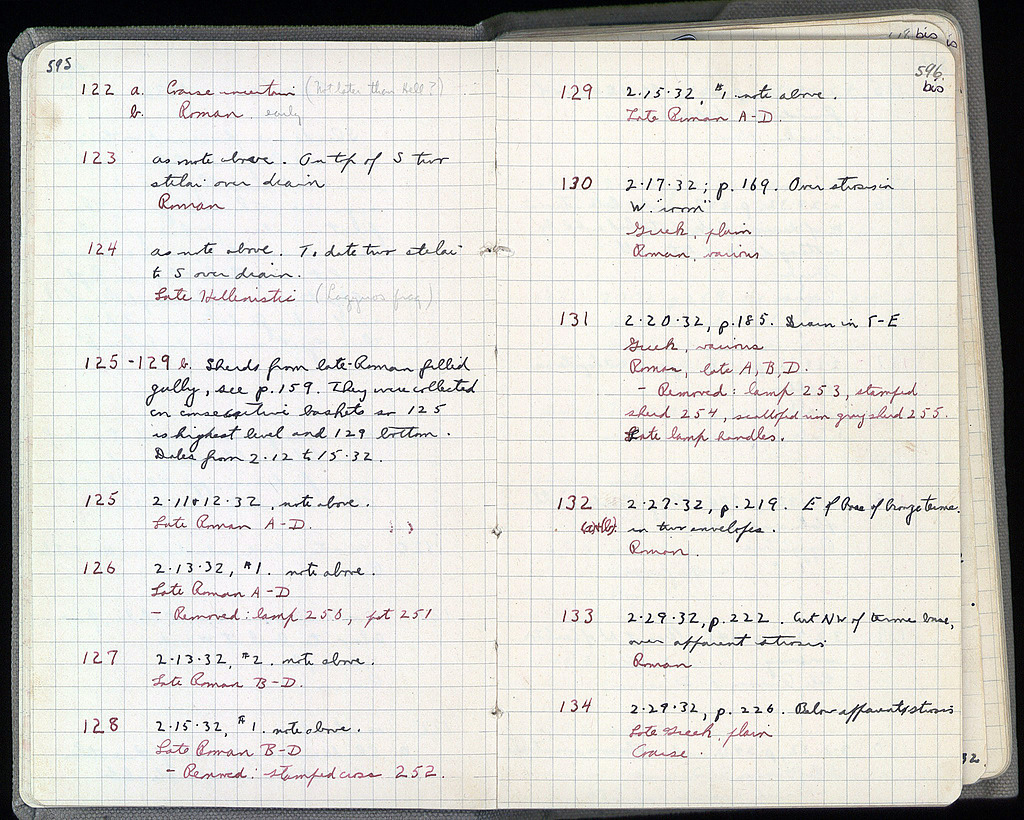 595
122 a. Coarse uncertain (Not later than Hell?)
b. Roman. early
123 as note above. On tp of S two
stelai over drain
Roman
124 as note above. To date two stelai
to S over drain.
Late Hellenistic (Lagynos frag)
125-129 b. Sherds from late-Roman filled
gully, see p.159. They were collected
in consecutive baskets so 125
is highest level and 129 bottom.
Dates from 2.12 to 15.32.
125 2.11+12.32, note above.
Late Roman A-D.
126 2.13.32, #1. note above.
Late Roman A-D
- Removed: lamp 250, pot 251
127 2.13.32, #2. note above.
Late Roman B-D.
128 2.15.32, #1. note above.
Late Roman B-D
- Removed: stamped cross 252.
bis
596.
bis
129 2.15.32, #1. note above.
Late Roman A-D.
130 2.17.32; p.169. Over strosis in
W. "room"
Greek, plain
Roman, various
131 2.20.32, p.185. Drain in Γ-E
Greek, various
Roman, late A, B, D.
- Removed: lamp 253, stamped
sherd 254, scalloped rim gray sherd 255.
Late lamp handles.
132 2.27.32, p.219. E of Base of bronze
(a)+(b). in two envelopes.
Roman.
133 2.29.32, p.222. Cut NW of base,
over apparent strosis
Roman
134 2.29.32, p.226. Below apparent strosis
Late Greek, plain
Coarse.